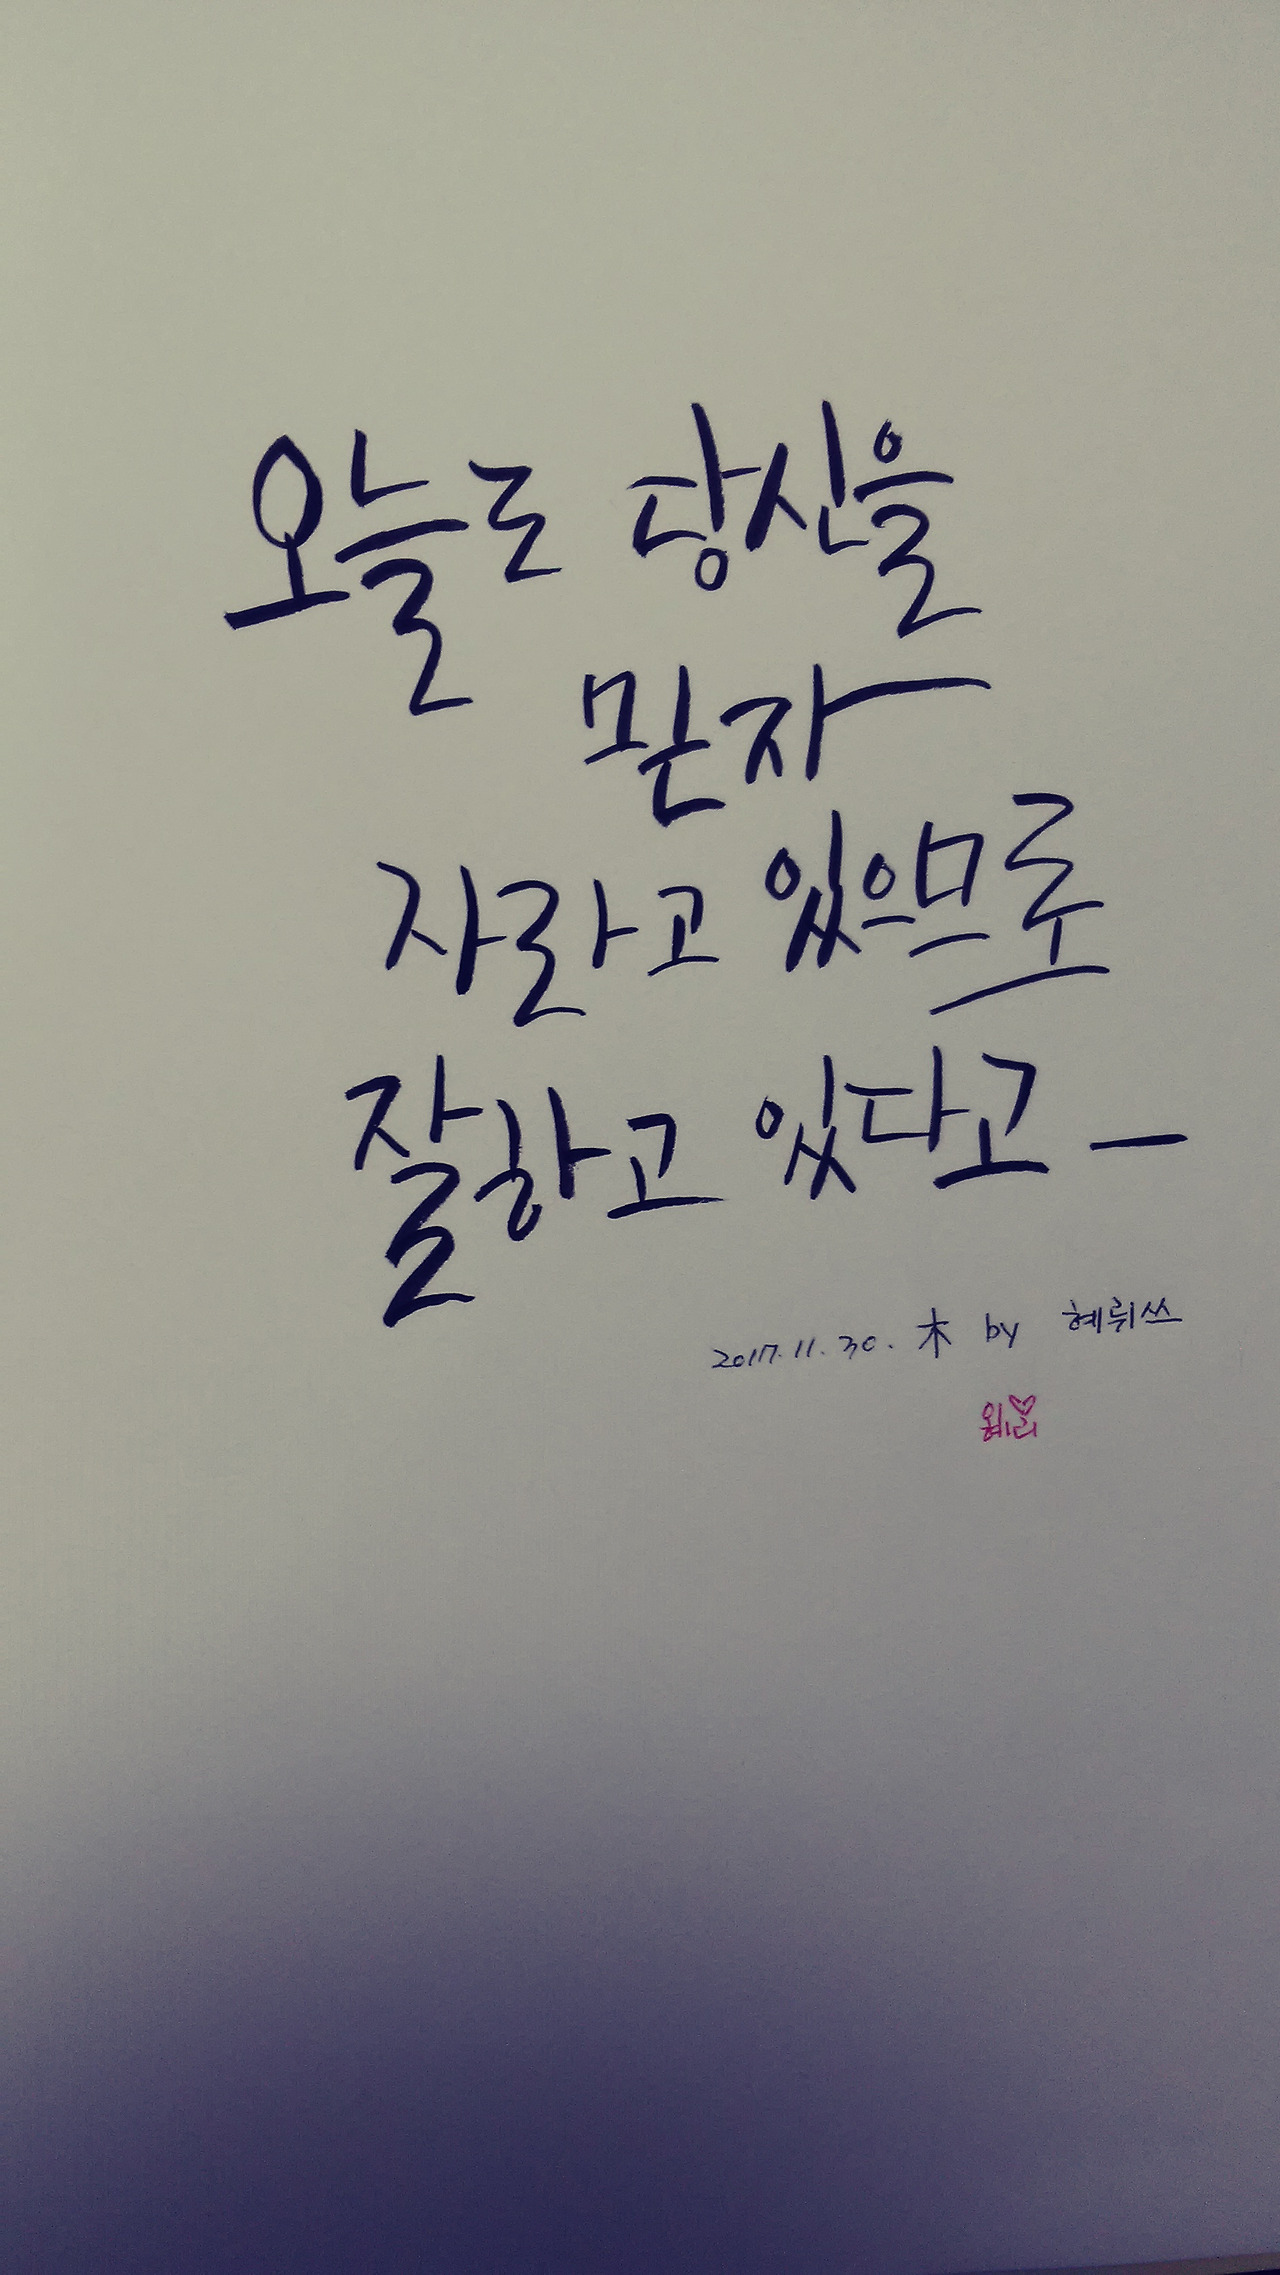 오늘도 당신을
믿자
자라고 있으므로
잘하고 있다고 –
2017. 11. 30. 木 by 혜뤼쓰